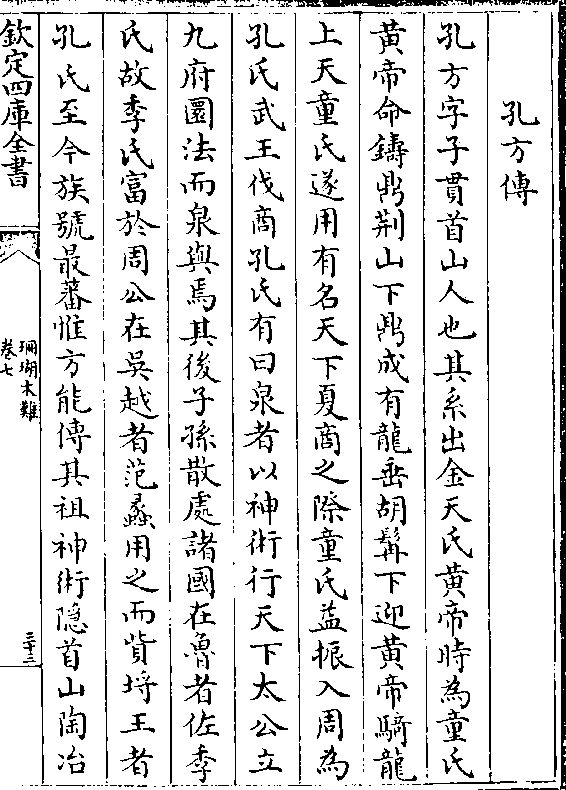 孔方傳
孔方字子貫首山人也其系出金天氏黃帝時為童氏
黃帝命鑄鼎荆山下鼎成有龍垂胡髯下迎黃帝騎龍
上天童氏遂用有名天下夏商之際童氏益振入周為
孔氏武王伐商孔氏有曰泉者以神術行天下太公立
九府圜法而泉與焉其後子孫散處諸國在魯者佐季
氏故季氏富於周公在吳越者范蠡用之而貲埒王者
孔氏至今族號最蕃惟方能傳其祖神術隐首山陶冶
欽定四庫全書
珊瑚木難
卷七
三十三